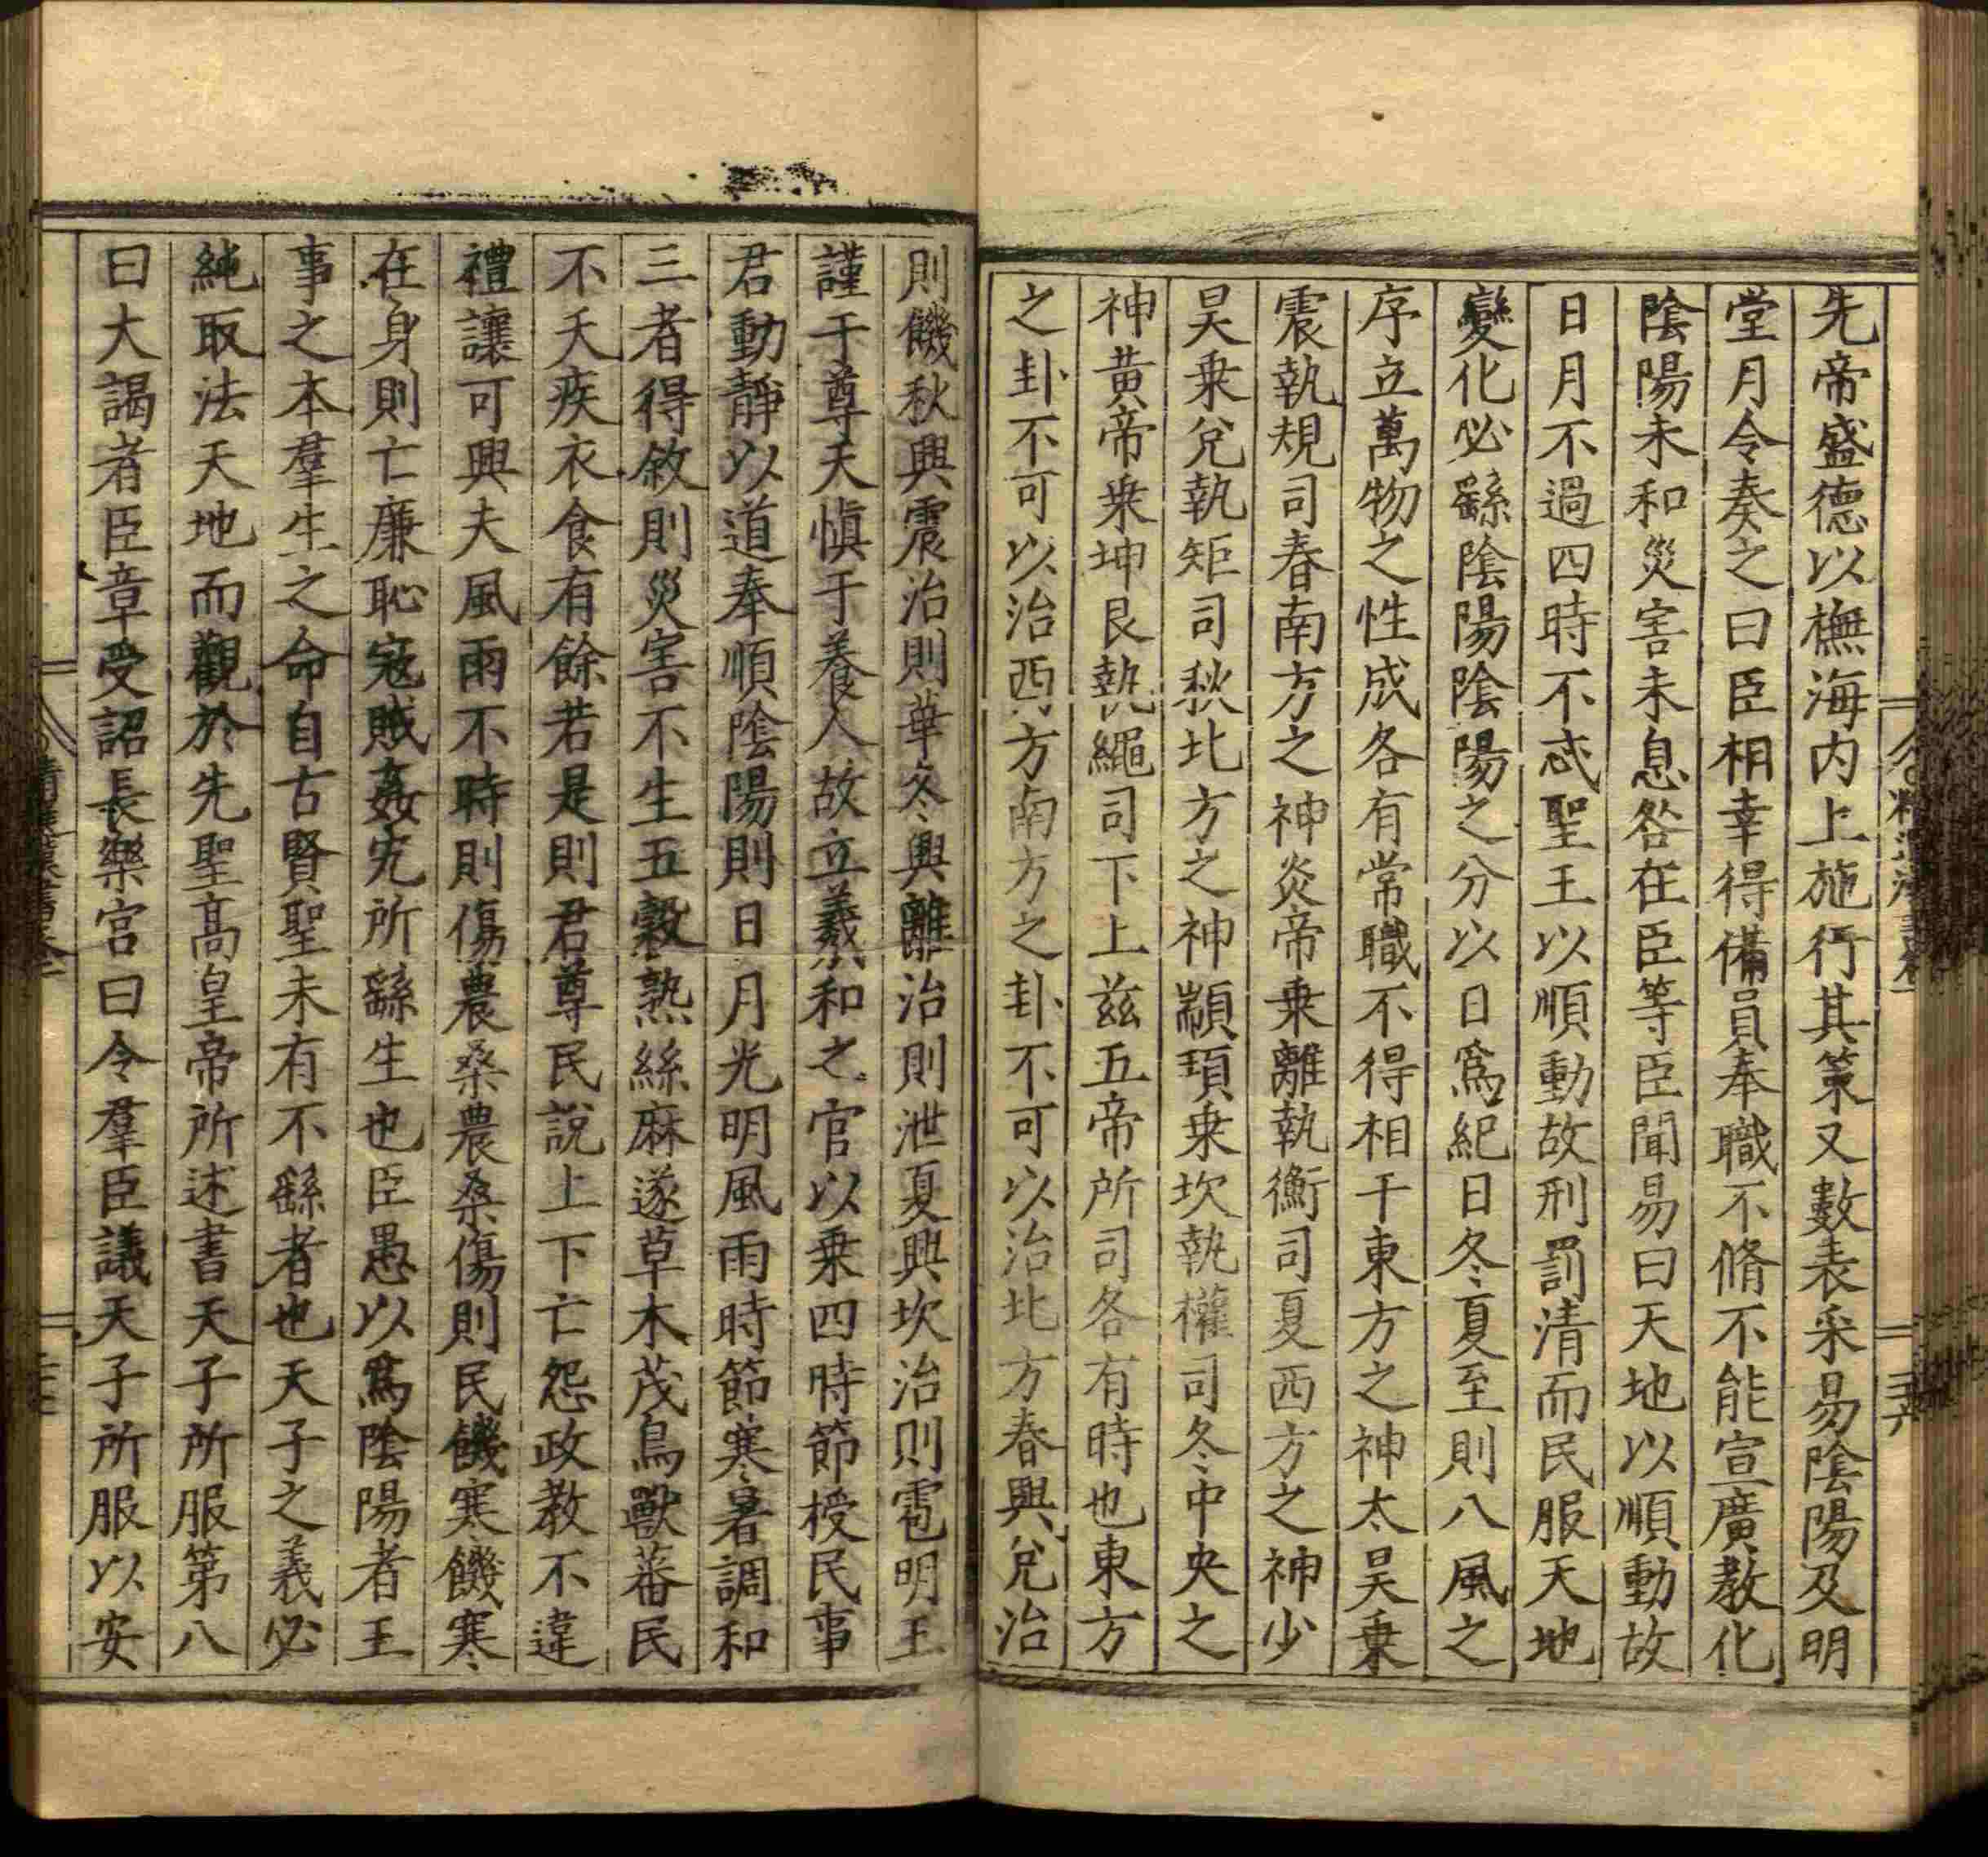 先帝盛德以撫海内上施行其策又數表采易陰陽及明
堂月令奏之曰臣相幸得備員奉職不脩不能宣廣教化
陰陽未和災害未息咎在臣等臣聞易曰天地以順動故
日月不過四時不忒聖王以順動故刑罰清而民服天地
變化必繇陰陽陰陽之分以日爲紀日冬夏至則八風之
序立萬物之性成各有常職不得相干東方之神太昊乗
震執規司春南方之神炎帝乗離執衡司夏西方之神少
昊乗兌執矩司秋北方之神顓頊乗坎執權司冬中央之
神黃帝乗坤艮執繩司下上兹五帝所司各有時也東方
之卦不可以治西方南方之卦不可以治北方春興兌治
則饑秋興震治則華冬興離治則泄夏興坎治則雹明王
謹于尊天慎于養人故立羲和之官以乗四時節授民事
君動靜以道奉順陰陽則日月光明風雨時節寒暑調和
三者得敘則災害不生五穀熟絲麻遂草木茂鳥獸蕃民
不夭疾衣食有餘若是則君尊民說上下亡怨政教不違
禮讓可興夫風雨不時則傷農桑農桑傷則民饑寒饑寒
在身則亡廉恥宼賊姦宄所繇生也臣愚以爲陰陽者王
事之本羣生之命自古賢聖未有不繇者也天子之義必
純取法天地而觀於先聖高皇帝所述書天子所服第八
曰大謁者臣章受詔長樂宮曰令羣臣議天子所服以安